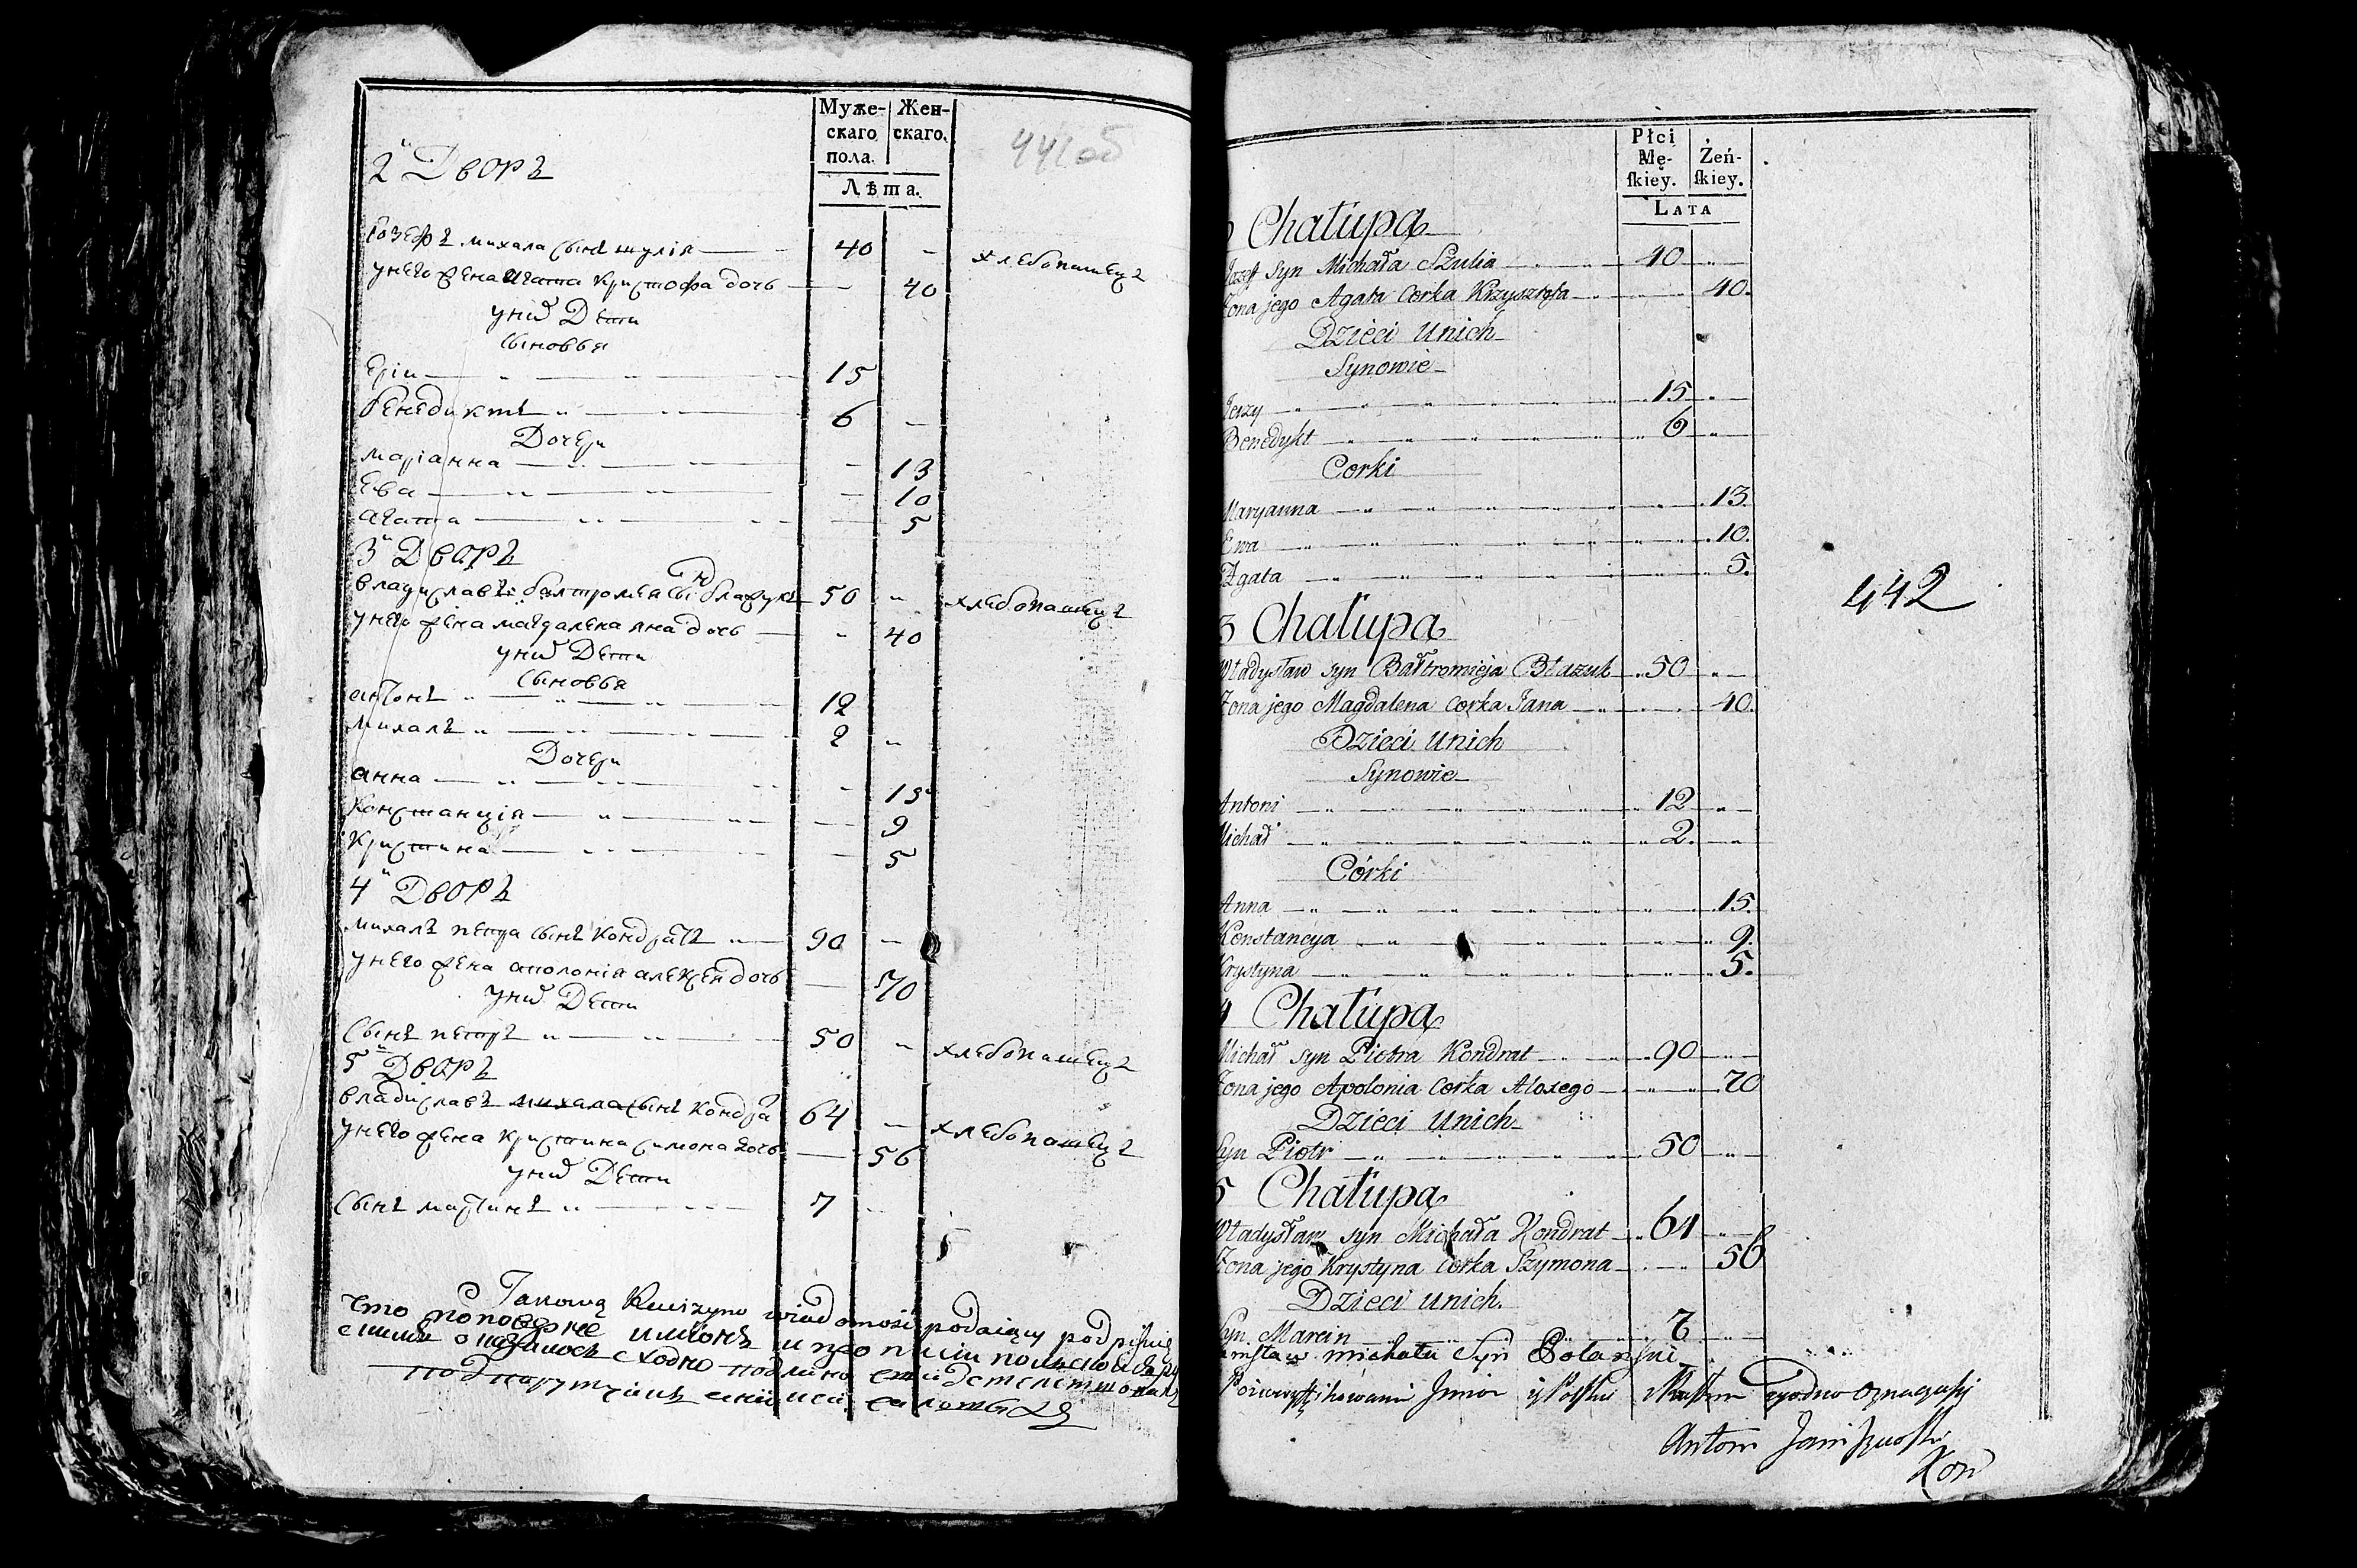 Муже-
скаго
пола.
Жен-
скаго.
Лѣта.
441об
2й Дворъ
Іозефъ михала сынъ шуліа 40
хлебопашецъ
унего жена агата кристофа дочь 40
уних Дети
Сыновья
Ерін 15
бенедиктъ 6
Дочери
маріанна 13
Ева 10
агата 5
3й Дворъ
владиславъ балтромеа сынъ блажукъ 50
хлебопашецъ
унего жена магдалена яна дочь 40
уних Дети
Сыновья
антонъ 12
михалъ 2
Дочери
анна 15
констанціа 9
кристина 5
4й Дворъ
михалъ петра сынъ кондратъ 90
унего жена аполоніа алексея дочь 70
уних Дети
Сынъ петръ 50
хлебопашецъ
5й Дворъ
владиславъ михала сынъ кондрат 64
хлебопашецъ
унего жена кристина симона дочь 56
уних Дети
Сынъ мартинъ 7
Takową wiadomość podaiący podpisuię
что
сходно
Płci
Mę-
ſkiey.
Żeń-
ſkiey.
Lata
Chałupa
Jozef syn Michała Szulia 40
Żona jego Agata Corka Krzysztofa 40.
Dzieci Unich
Synowie
Jerzy 15
Benedykt 6
Corki
Maryanna 13.
Ewa 10.
Agata 5.
442
3 Chałupa
Władysław syn Bałtromieja Błazuk 50
Żona jego Magdalena Corka Jana 40.
Dzieci Unich
Synowie
Antoni 12
Michał 2.
Córki
Anna 15.
Konstancya 9.
Krystyna 5.
4 Chałupa
Michał syn Piotra Kondrat 90
Żona jego Apolonia Corka Alexego 70
Dzieci Unich
Syn Piotr 50
5 Chałupa
Władysław syn Michała Kondrat 64
Żona jego Krystyna Corka Szymona 56
Dzieci Unich.
Syn Marcin 7
michała Syn
zgodno
Antoni